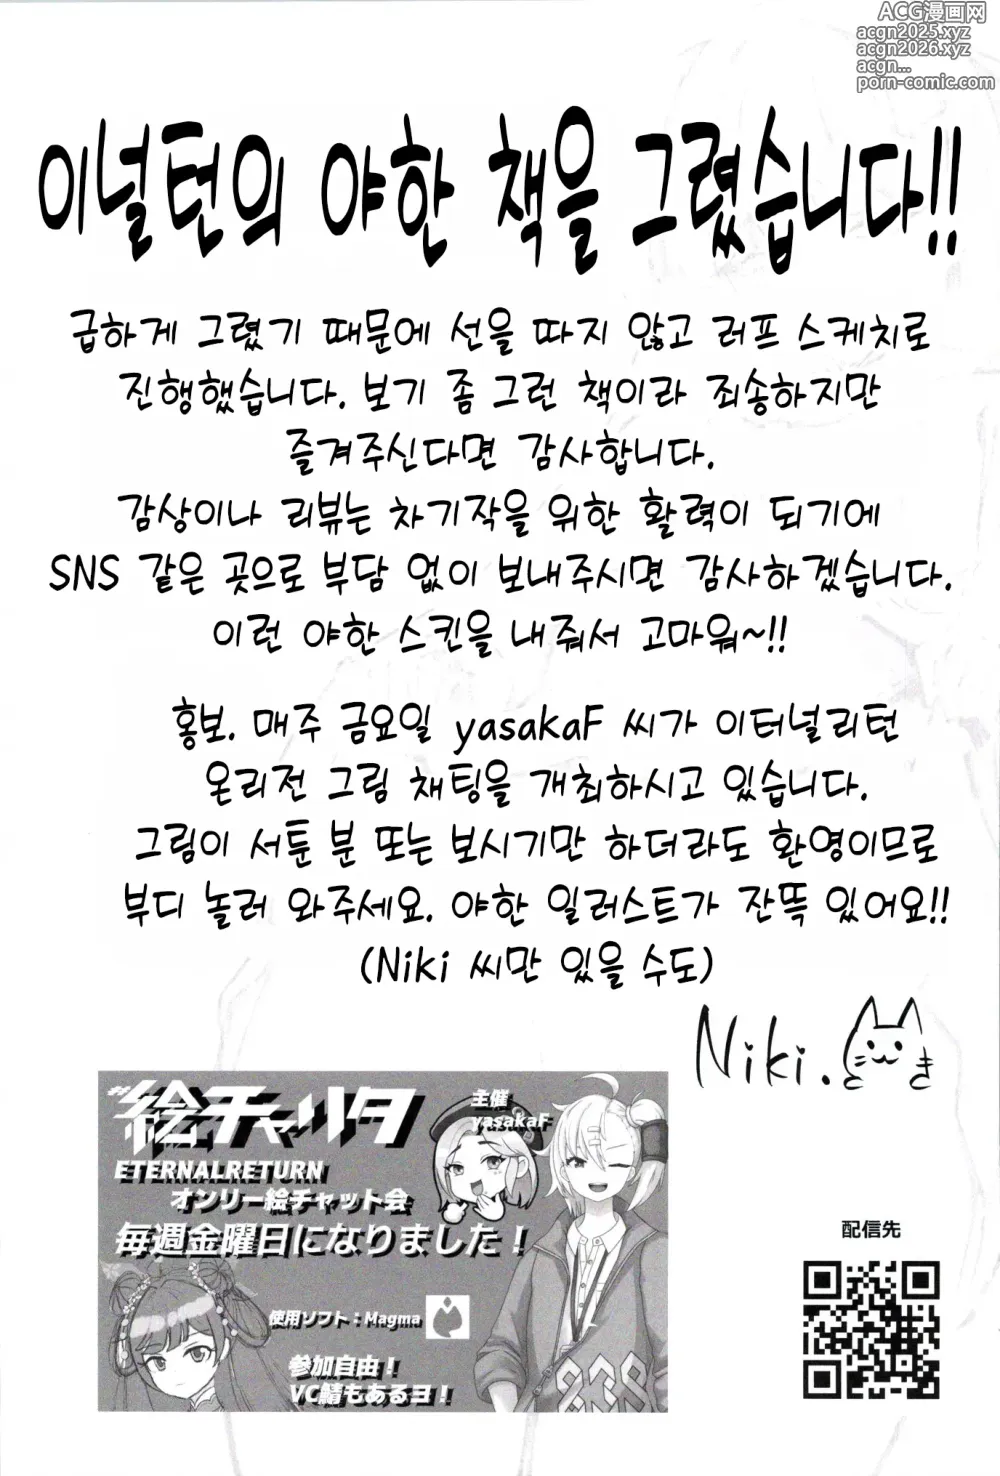 ACG漫画网
acgn2025.xyz
acgn2026.xyz
acgn...
porn-comic.com
이널턴의 야한 책을 그렸습니다!!
급하게 그렸기 때문에 선을 따지 않고 러프 스케치로
진행했습니다. 보기 좀 그런 책이라 죄송하지만
즐겨주신다면 감사합니다.
감상이나 리뷰는 차기작을 위한 활력이 되기에
SNS 같은 곳으로 부담 없이 보내주시면 감사하겠습니다.
이런 야한 스킨을 내줘서 고마워~!!
홍보. 매주 금요일 yasakaF 씨가 이터널리턴
온리전 그림 채팅을 개최하시고 있습니다.
그림이 서툰 분 또는 보시기만 하더라도 환영이므로
부디 놀러 와주세요. 야한 일러스트가 잔뜩 있어요!!
(Niki 씨만 있을 수도)
Niki.
き
#絵チャッタ
主催
yasakaF
ETERNALRETURN
オンリー絵チャット会
毎週金曜日になりました!
使用ソフト:Magma
参加自由!
VC鯖もあるヨ!
配信先